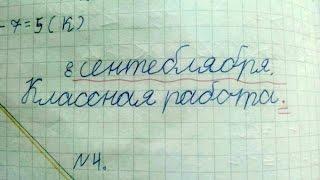 - 7 = 5 (К)
8 сентеблября.
Классная работа.
№4.